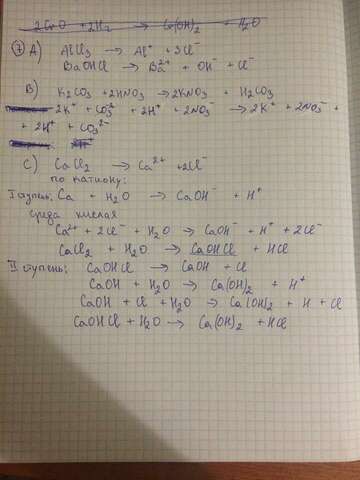 2CrO + 2H₂ → Ca(OH)₂ + H₂O
⑦ A) AlCl₃ → Al⁺ + 3Cl⁻
BaOHCl → Ba²⁺ + OH⁻ + Cl⁻
B) K₂CO₃ + 2HNO₃ → 2KNO₃ + H₂CO₃
2K⁺ + CO₃²⁻ + 2H⁺ + 2NO₃⁻ → 2K⁺ + 2NO₃⁻ +
+ 2H⁺ + CO₃²⁻
C) CaCl₂ → Ca²⁺ + 2Cl⁻
по катиону:
I ступень: Ca + H₂O → CaOH⁻ + H⁺
среда кислая
Ca²⁺ + 2Cl⁻ + H₂O → CaOH⁻ + H⁺ + 2Cl⁻
CaCl₂ + H₂O → CaOHCl + HCl
II ступень: CaOHCl → CaOH + Cl
CaOH + H₂O → Ca(OH)₂ + H⁺
CaOH + Cl + H₂O → Ca(OH)₂ + H + Cl
CaOHCl + H₂O → Ca(OH)₂ + HCl